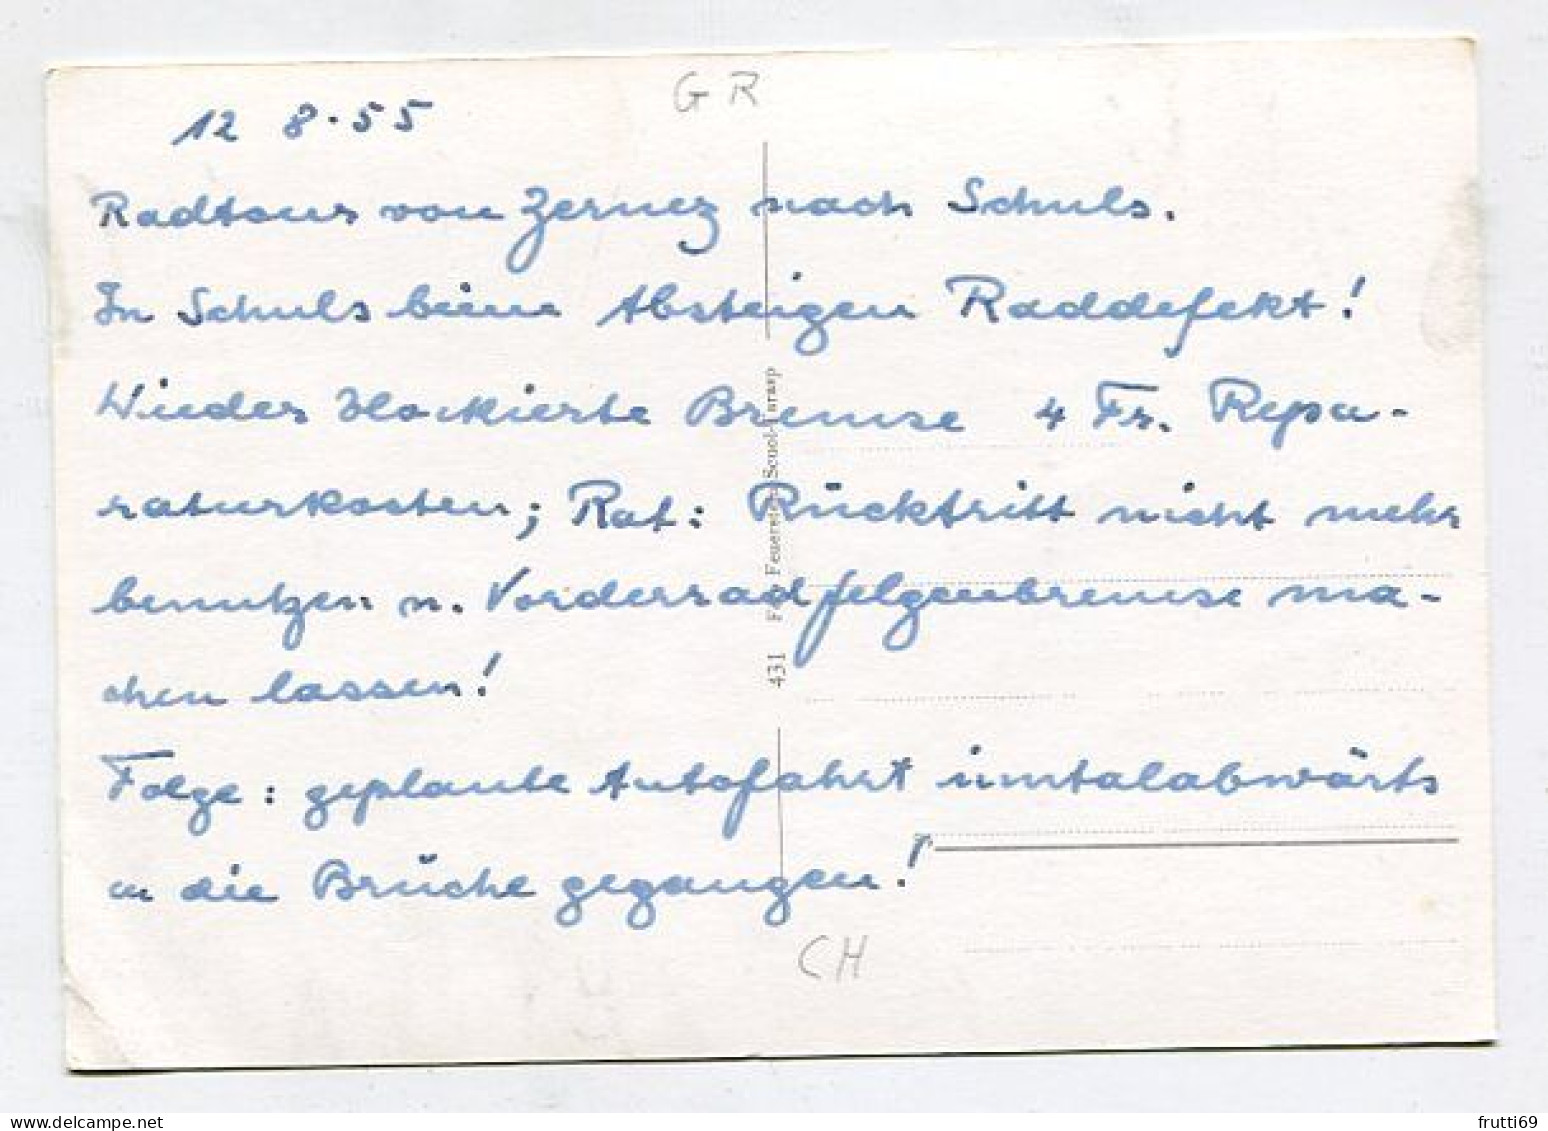 GR
12 8.55
Radtour von Zernez nach Schuls.
In Schuls beim Absteigen Raddefekt!
Wieder blockierte Bremse 4 Fr. Repa-
raturkosten; Rat: Rücktritt nicht mehr
benutzen u. Vorderradfelgenbremse ma-
chen lassen!
Folge: geplante Autofahrt inntalabwärts
in die Brüche gegangen!
CH
431 Foto Feuerstein Scuol-Tarasp
frutti69